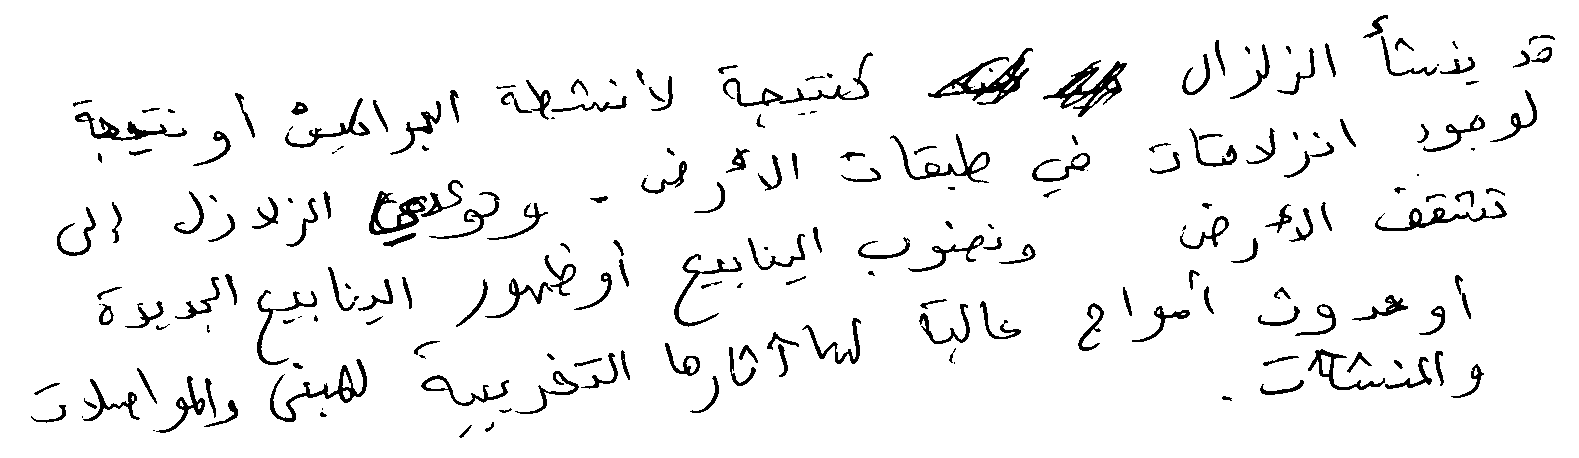 قد ينشأ الزلزال كنتيجة لأنشطة البراكين أو نتيجة
لوجود انزلاقات في طبقات الأرض. وتؤدي الزلازل إلى
تشقف الأرض ونضوب الينابيع أو ظهور الينابيع الجديدة
أو حدوث أمواج عالية لها آثارها التخريبية للمبنى والمواصلات
والمنشآت.